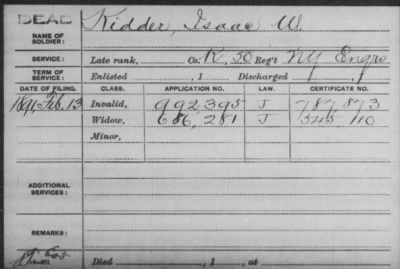 DEAD
NAME OF SOLDIER: Kidder, Isaac W.
SERVICE: Late rank, Co. K, 50 Reg't NY Engrs.
TERM OF SERVICE: Enlisted , 1 Discharged , 1
DATE OF FILING. CLASS. APPLICATION NO. LAW. CERTIFICATE NO.
1891, Feb. 13 Invalid, 992,395 J 787,873
Widow, 686,281 J 545,110
Minor,
ADDITIONAL SERVICES:
REMARKS:
Died , 1 , at